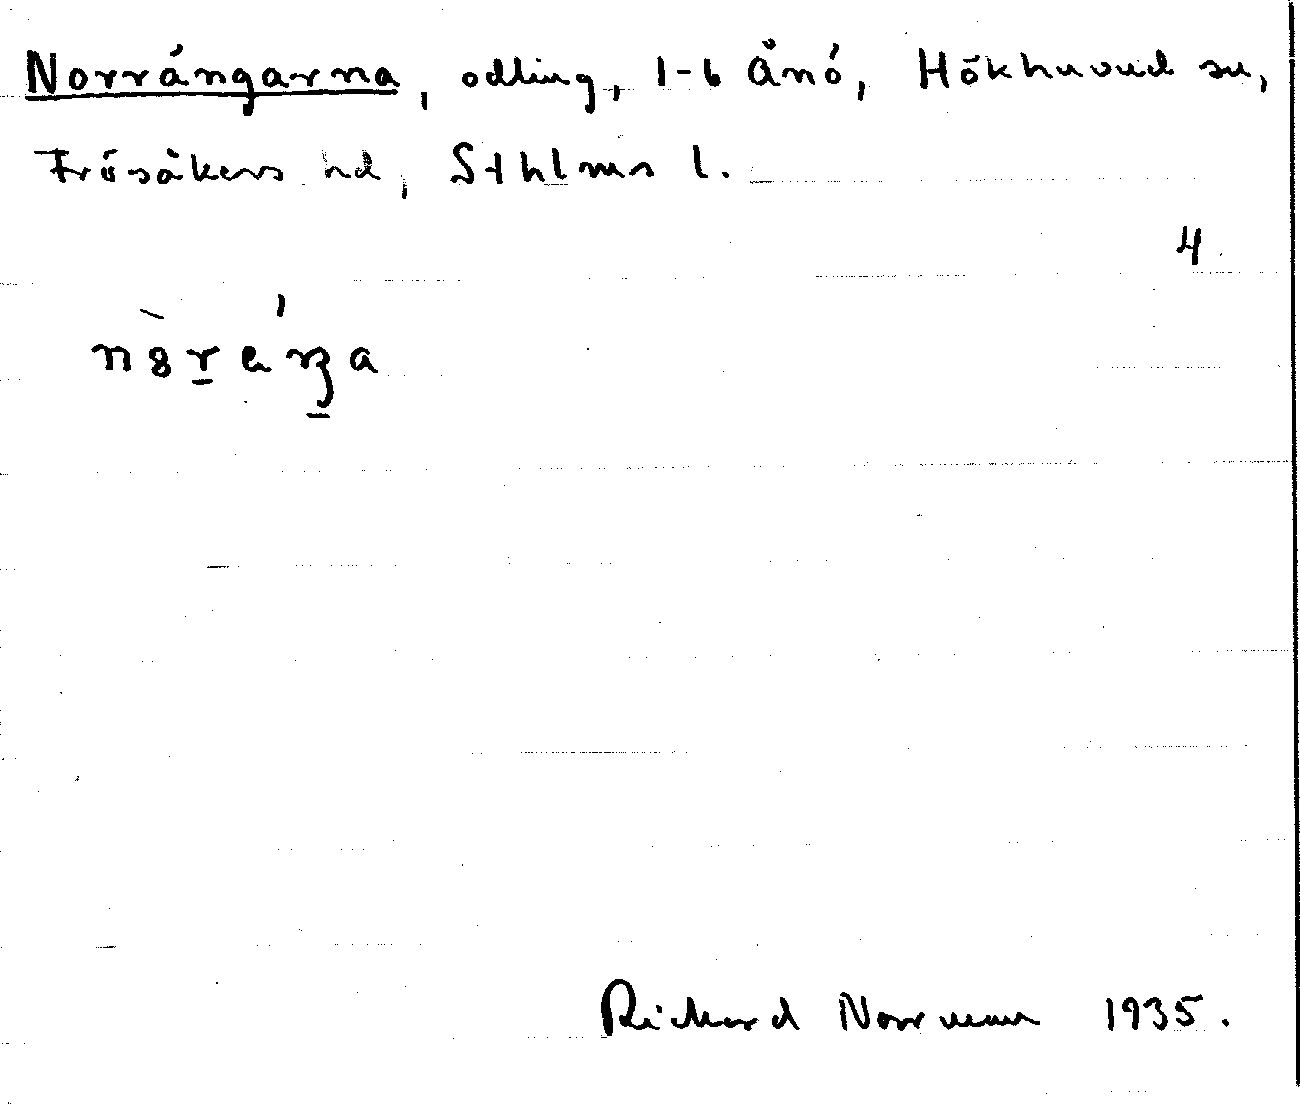 Norrängarna, odling, 1-6 Ånö, Hökhuvud sn,
Frösåkers hd, Sthlms l.
4
Richard Norrman 1935.